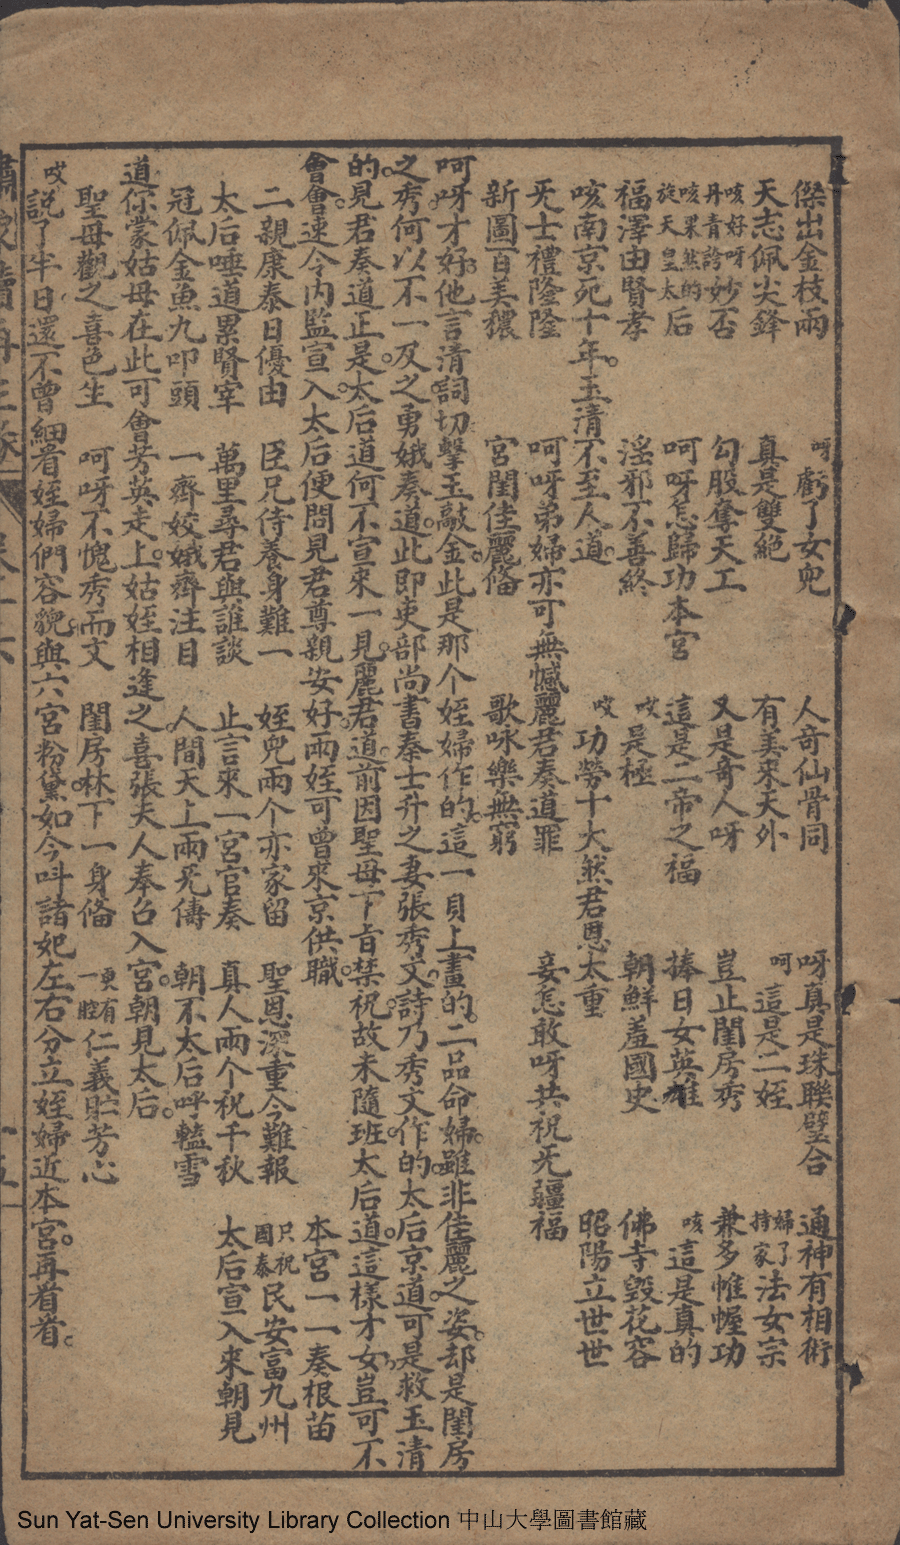 傑出金枝兩　呀虧了女兜　人奇仙骨同　呀真是珠聯璧合　通神有相術
天志佩尖鋒　真是雙絶　有美来天外　呵這是二姪　婦了持家法女宗
咳好呀丹青誇妙否　勾股奪天工　又是奇人呀　豈止閨房秀　兼多帷幄功
咳果然的旋天皇太后　呵呀怎歸功本宮　這是二帝之福　捧日女英雄　咳這是真的
福澤由賢孝　淫邪不善終　哎是極　朝鮮羞國史　佛寺毀花容
咳南京死十年。玉清不至人道。　哎功勞十大然君恩太重　昭陽立世世
旡士禮隆隆　呵呀弟婦亦可無憾麗君奏道罪　妾怎敢呀共祝旡疆福
新圖百美穠　宮閨佳麗僃　歌咏樂無窮
呵呀才好。他言清詞切擊玉敲金。此是那个姪婦作的。這一頁上畫的。二品命婦。雖非佳麗之姿。却是閨房
之秀。何以不一及之勇娥奏道。此即吏部尚書秦士升之妻張秀文。詩乃秀文作的。太后京道。可是救玉清
的。見君奏道正是。太后道何不宣來一見。麗君道。前因聖母下旨禁祝。故未隨班。太后道。這樣才女。豈可不
會會。速令内監宣入。太后便問見君尊親安好。兩姪可曾來京供職　本宮一一奏根苗
二親康泰日優由　臣兄侍養身難一　姪兜兩个亦家留　聖恩深重今難報　只祝國泰民安富九州
太后唾道累賢宰　萬里尋君與誰談　止言來一宮官奏　真人兩个祝千秋　太后宣入來朝見
冠佩金魚九叩頭　一齊姣娥齊注目　人間天上兩旡儔　朝不太后呼轞雪
道你蒙姑母在此可會芳英走上。姑姪相逢之喜張夫人奉召入宮。朝見太后。
聖母觀之喜色生　呵呀不愧秀而文　閨房林下一身僃　更有一腔仁義貯芳心
哎說了半日還不曾細看姪婦們容貌。與六宮粉黛如今呌諸妃左右分立姪婦近本宮。再看看。